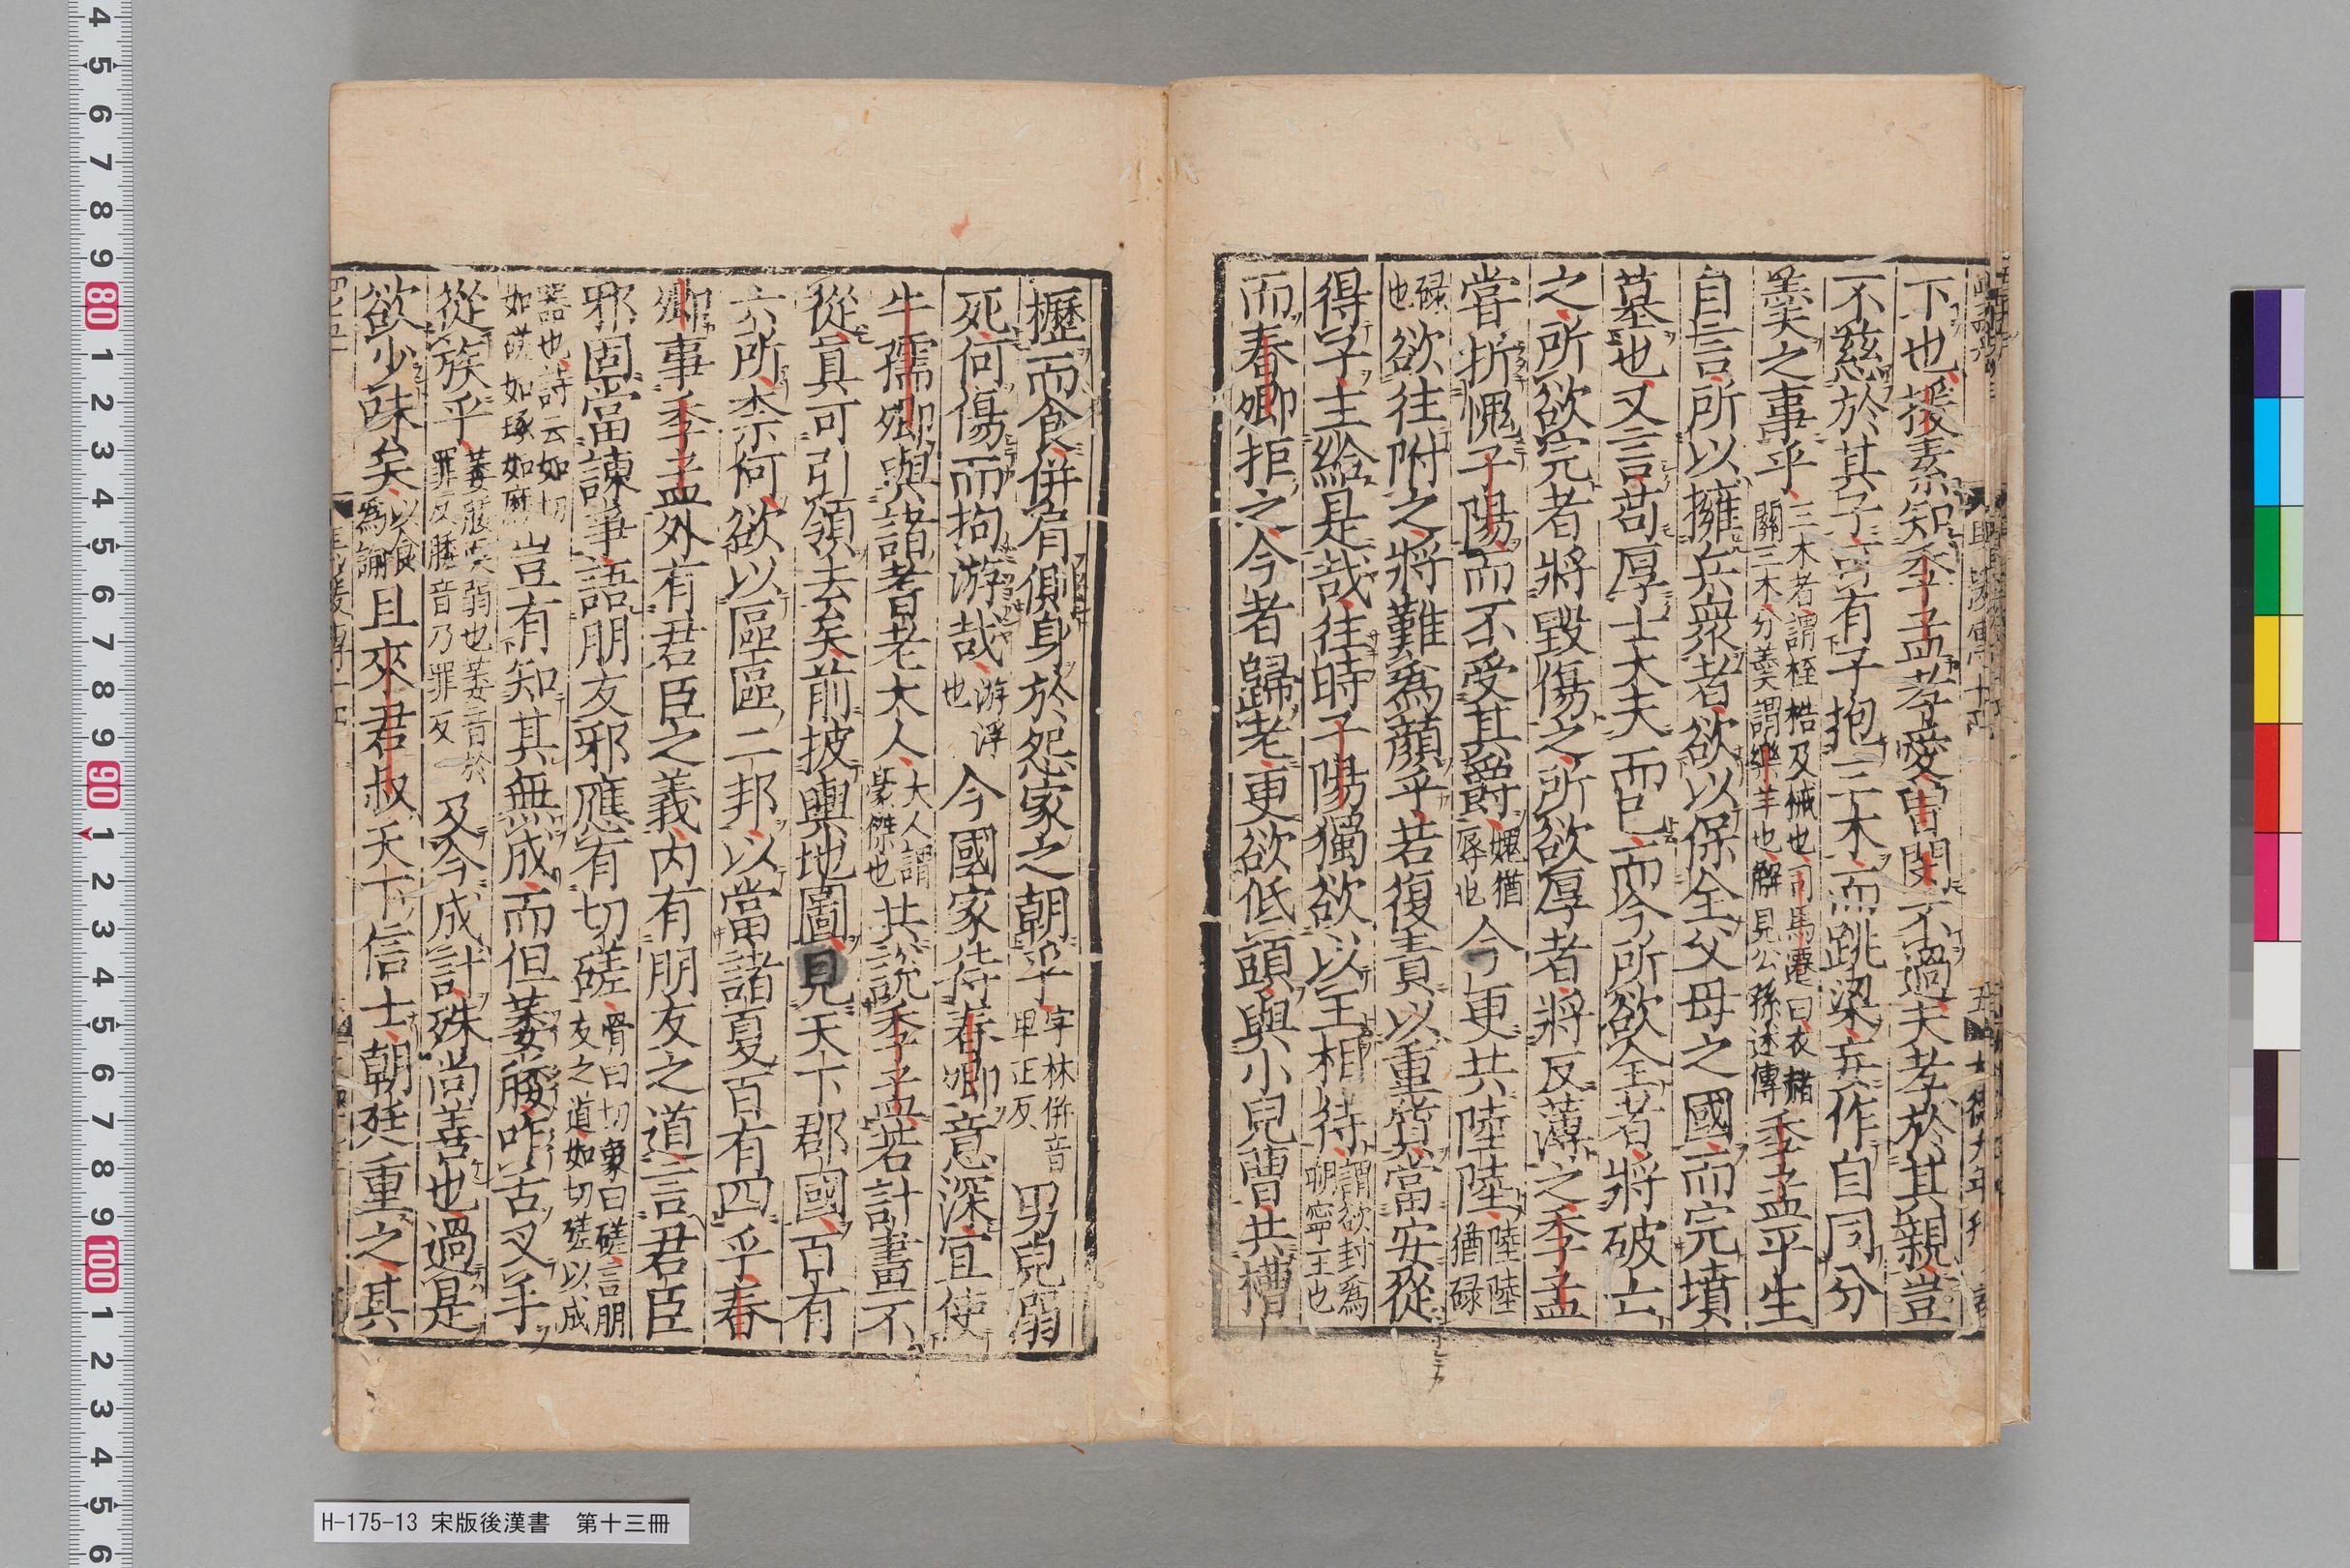 下也援素知季孟孝愛曽閔不過夫孝於其親豈
不慈於其子可有子抱三木而跳梁妄作自同分
羹之事乎三木者謂桎梏及械也司馬遷曰衣赭關三木分羹謂樂羊也解見公孫述傳季孟平生
自言所以擁兵衆者欲以保全父母之國而完墳
墓也又言苟厚士大夫而已而今所欲全者將破亡
之所欲完者將毀傷之所欲厚者將反薄之季孟
嘗折愧子陽而不受其爵媿猶辱也今更共陸陸陸陸猶碌
碌也欲往附之將難爲顔乎若復責以重質當安從
得子主給是哉往時子陽獨欲以王相待謂欲封爲朔寧王也
而春卿拒之今者歸老更欲低頭與小兒曹共槽
櫪而食併肩側身於怨家之朝乎字林併音卑正反男兒溺
死何傷而拘游哉游浮也今國家待春卿意深宜使
牛孺卿與諸耆老大人大人謂豪傑也共說季孟若計畫不
從真可引領去矣前披輿地圖見天下郡國百有
六所柰何欲以區區二邦以當諸夏百有四乎春
卿事季孟外有君臣之義内有朋友之道言君臣
邪固當諫爭語朋友邪應有切磋骨曰切象曰磋言朋友之道如切磋以成
器也詩云如切如磋如琢如磨豈有知其無成而但萎腇咋舌叉手
從族乎萎腇耎弱也萎音於罪反腇音乃罪反及今成計殊尚善也過是
欲少味矣以食爲諭且來君叔天下信士朝廷重之其
H-175-13 宋版後漢書　第十三冊